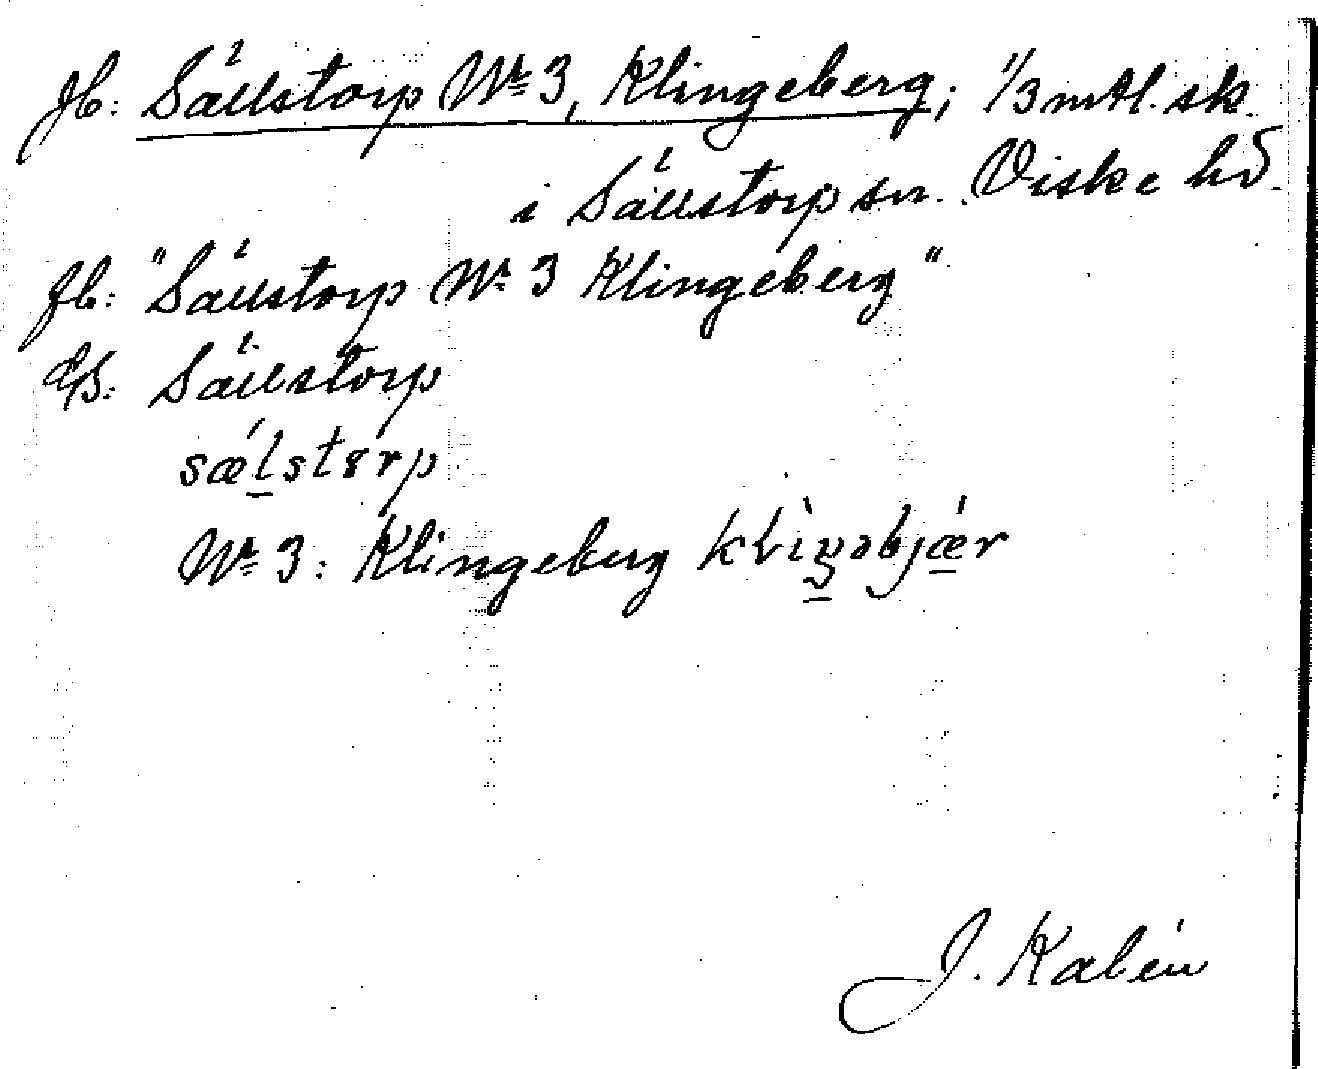 Jb: Sällstorp Nr 3, Klingeberg; 1/3 mtl. sk.
i Sällstorp sn. Viske hd.
Jb: "Sällstorp Nr 3 Klingeberg"
Sällstorp
Nr 3: Klingeberg
J. Kalén